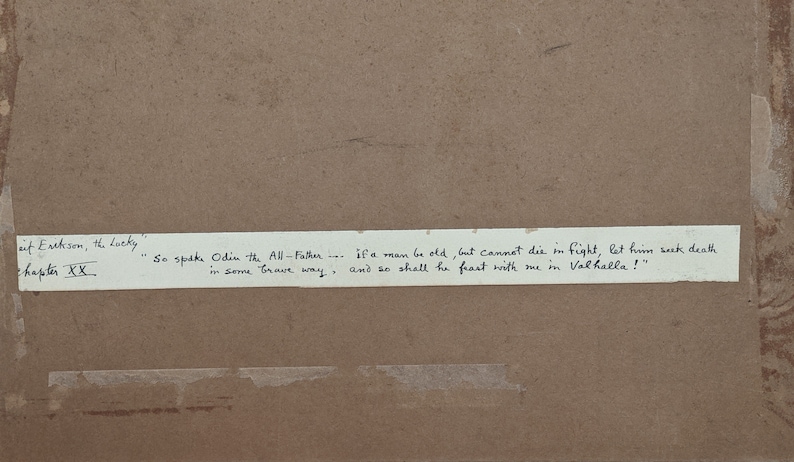 eif Erikson, the Lucky"
hapter XX
"So spake Odin the All-Father --- if a man be old, but cannot die in fight, let him seek death
in some brave way, and so shall he feast with me in Valhalla!"